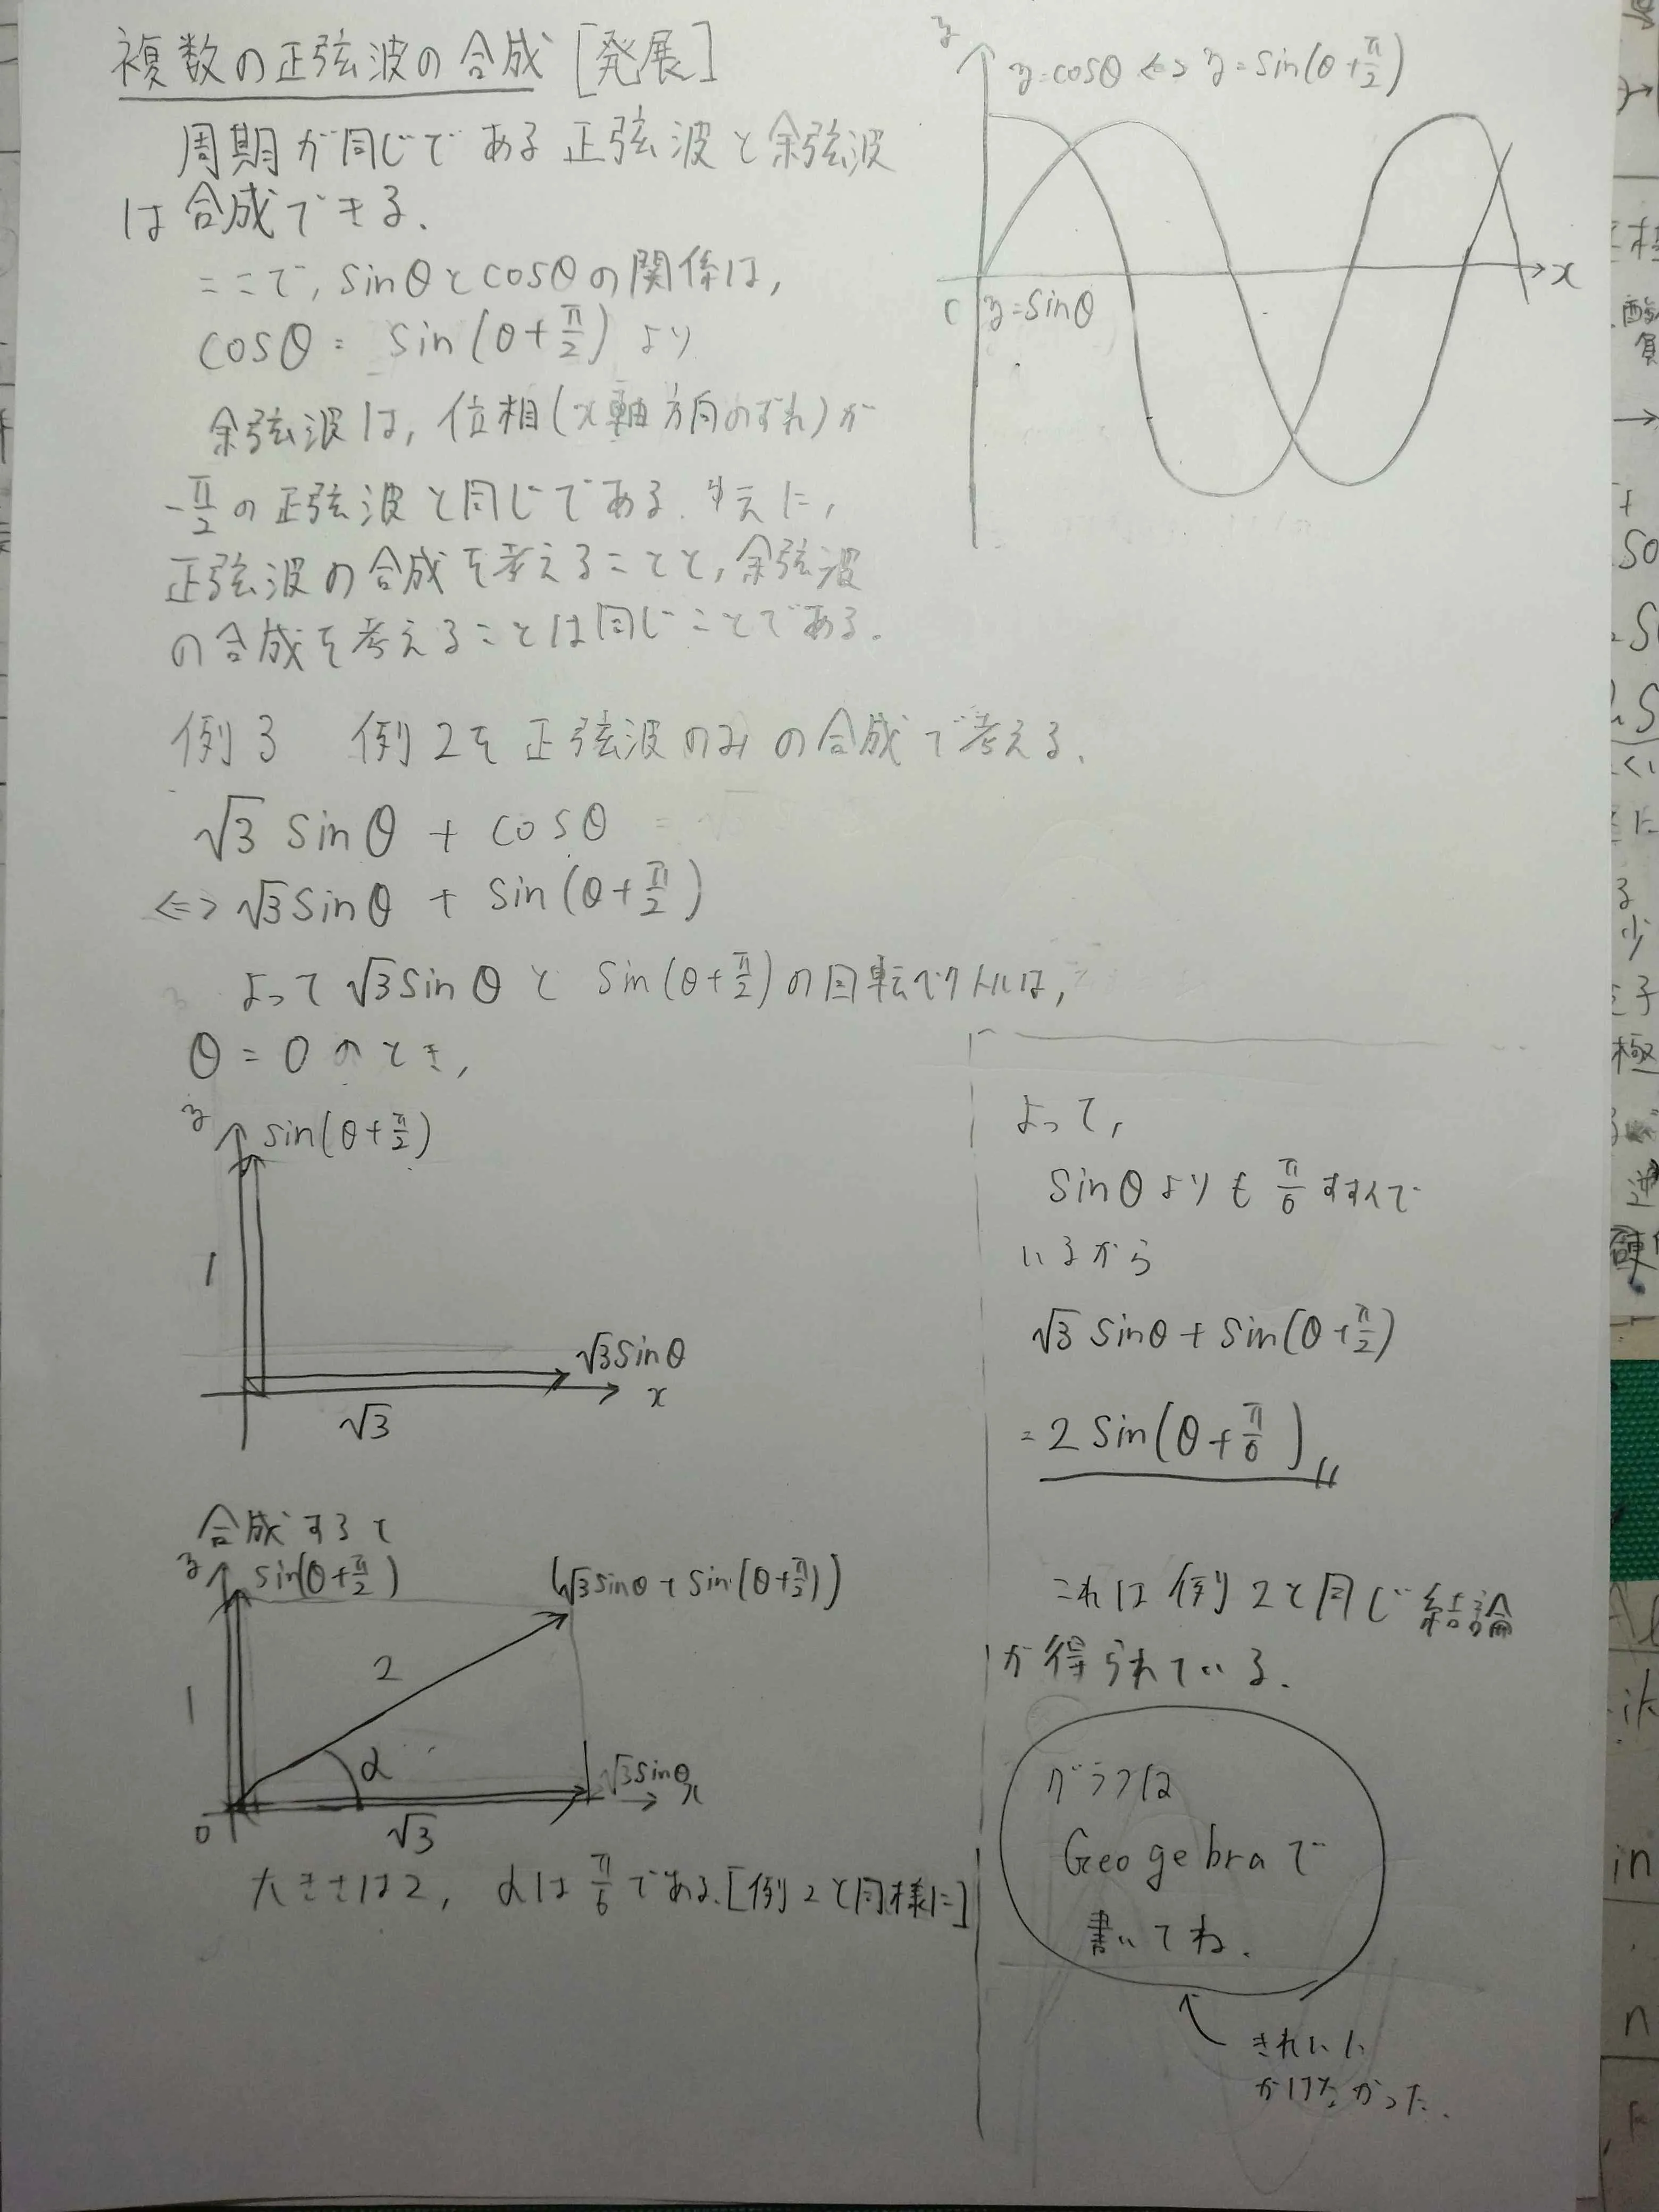 複数の正弦波の合成［発展］
周期が同じである正弦波と余弦波
は合成できる.
ここで, sinθとcosθの関係は,
cosθ = sin(θ+π/2) より
余弦波は, 位相(x軸方向のずれ)が
-π/2の正弦波と同じである. ゆえに,
正弦波の合成を考えることと, 余弦波
の合成を考えることは同じことである.
y
y=cosθ ⇔ y=sin(θ+π/2)
x
y=sinθ
例3 例2を正弦波のみの合成で考える.
√3 sinθ + cosθ
⇔ √3sinθ + sin(θ+π/2)
よって √3sinθ と sin(θ+π/2)の回転ベクトルは,
θ = 0 のとき,
y
sin(θ+π/2)
1
√3sinθ
x
√3
合成すると
y
sin(θ+π/2)
(√3sinθ + sin(θ+π/2))
2
1
α
√3sinθ
x
0
√3
大きさは2, αはπ/6である.[例2と同様に]
よって,
sinθよりもπ/6すすんで
いるから
√3 sinθ + sin(θ+π/2)
= 2 sin(θ+π/6)〃
これは例2と同じ結論
が得られている.
グラフは
Geogebraで
書いてね.
きれいに
かけなかった.